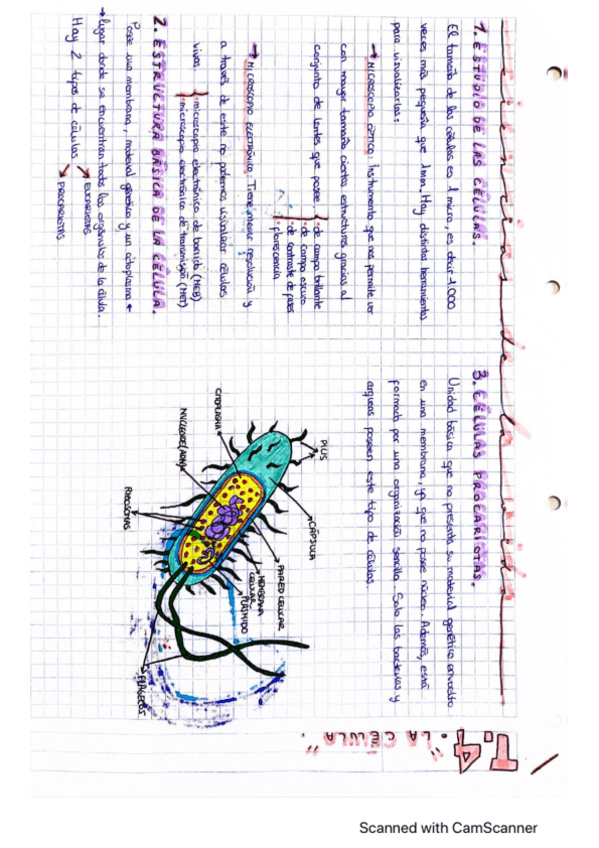 T.4. "LA CÉLULA".
ciencias de la vida
1. ESTUDIO DE LAS CÉLULAS.
El tamaño de las células es 1 micra, es decir 1.000
veces más pequeña que 1mm. Hay distintas herramientas
para visualizarlas:
→ MICROSCOPIO ÓPTICO: instrumento que nos permite ver
con mayor tamaño ciertas estructuras gracias al
conjunto de lentes que posee.
· de campo brillante
· de campo oscuro
· de contraste de fases
· florescencia
→ MICROSCOPIO ELECTRÓNICO: Tiene mayor resolución y
a través de este no podemos visualizar células
vivas.
· microscopio electrónico de barrido (MEB)
· microscopio electrónico de transmisión (MET)
2. ESTRUCTURA BÁSICA DE LA CÉLULA.
Posee una membrana, material genético y un citoplasma ←
→ lugar donde se encuentran todos los orgánulos de la célula.
Hay 2 tipos de células
EUCARIOTAS
PROCARIOTAS
3. CÉLULAS PROCARIOTAS.
Unidad básica que no presenta su material genético envuelto
en una membrana, ya que no posee núcleo. Además, está
formada por una organización sencilla. Solo las bacterias y
arqueas poseen este tipo de células.
PILUS
CÁPSULA
PARED CELULAR
MEMBRANA
CELULAR
PLÁSMIDO
CITOPLASMA
NUCLEOIDE (ADN)
RIBOSOMAS
FLAGELOS
Scanned with CamScanner